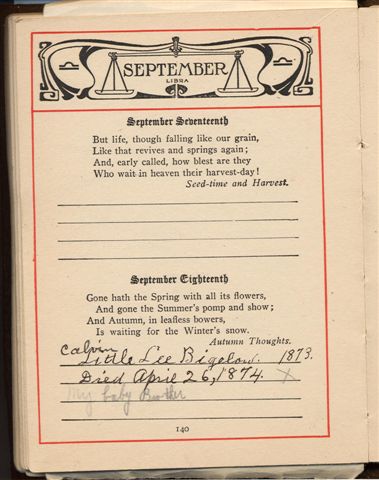 SEPTEMBER
LIBRA
September Seventeenth
But life, though falling like our grain,
Like that revives and springs again;
And, early called, how blest are they
Who wait in heaven their harvest-day!
Seed-time and Harvest.
September Eighteenth
Gone hath the Spring with all its flowers,
And gone the Summer's pomp and show;
And Autumn, in leafless bowers,
Is waiting for the Winter's snow.
Autumn Thoughts.
Calvin
Little Lee Bigelow. 1873.
Died April 26, 1874. X
My baby Brother
140